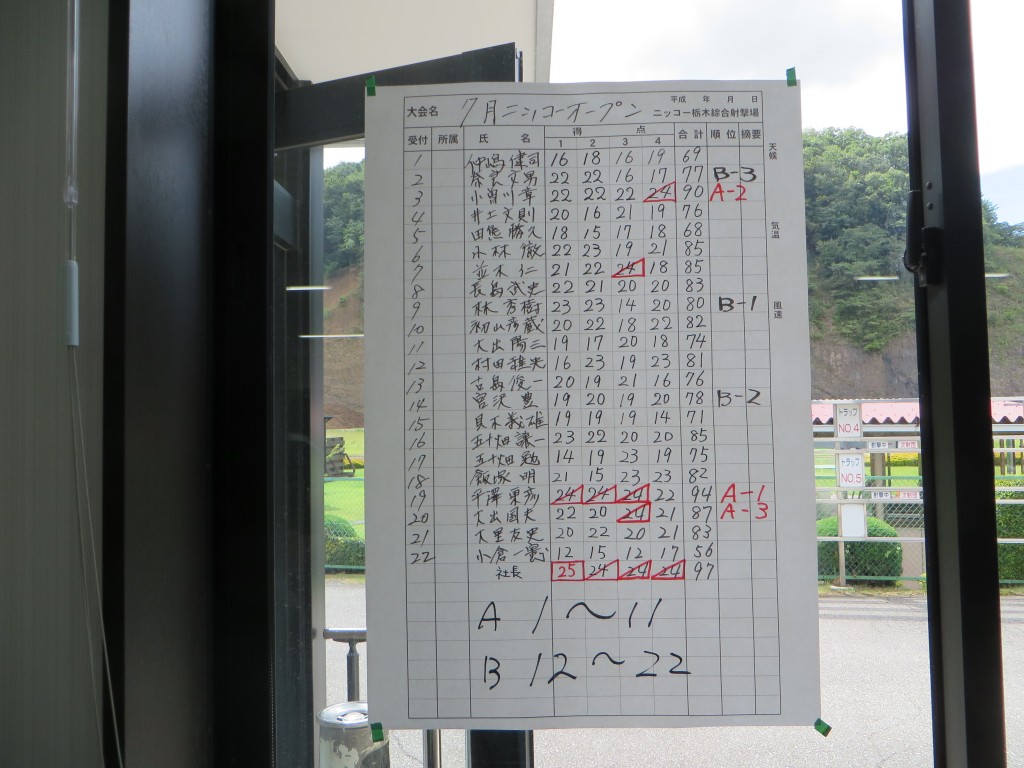 平成 年 月 日
大会名 7月ニッコーオープン ニッコー栃木綜合射撃場
受付 所属 氏名 得点 合計 順位 摘要
1 2 3 4
1 仲嶋 健司 16 18 16 19 69
2 奈良 文男 22 22 16 17 77 B-3
3 小曽川 章 22 22 22 24 90 A-2
4 井上 文則 20 16 21 19 76
5 田熊 勝久 18 15 17 18 68
6 小林 徹 22 23 19 21 85
7 並木 仁 21 22 24 18 85
8 長島 武史 22 21 20 20 83
9 林 秀樹 23 23 14 20 80 B-1
10 初山 彦蔵 20 22 18 22 82
11 大出 陽三 19 17 20 18 74
12 村田 雅央 16 23 19 23 81
13 吉島 俊一 20 19 21 16 76
14 宮沢 豊 19 20 19 20 78 B-2
15 貝木 義雄 19 19 19 14 71
16 五十畑 譲一 23 22 20 20 85
17 五十畑 勉 14 19 23 19 75
18 飯塚 明 21 15 23 23 82
19 平澤 24 24 24 22 94 A-1
20 大出 国夫 22 20 24 21 87 A-3
21 大里 友史 20 22 20 21 83
22 小倉 一 12 15 12 17 56
社長 25 24 24 24 97
A 1〜11
B 12〜22
天候
気温
風速
トラップ
NO.4
射撃中
トラップ
NO.5
射撃中